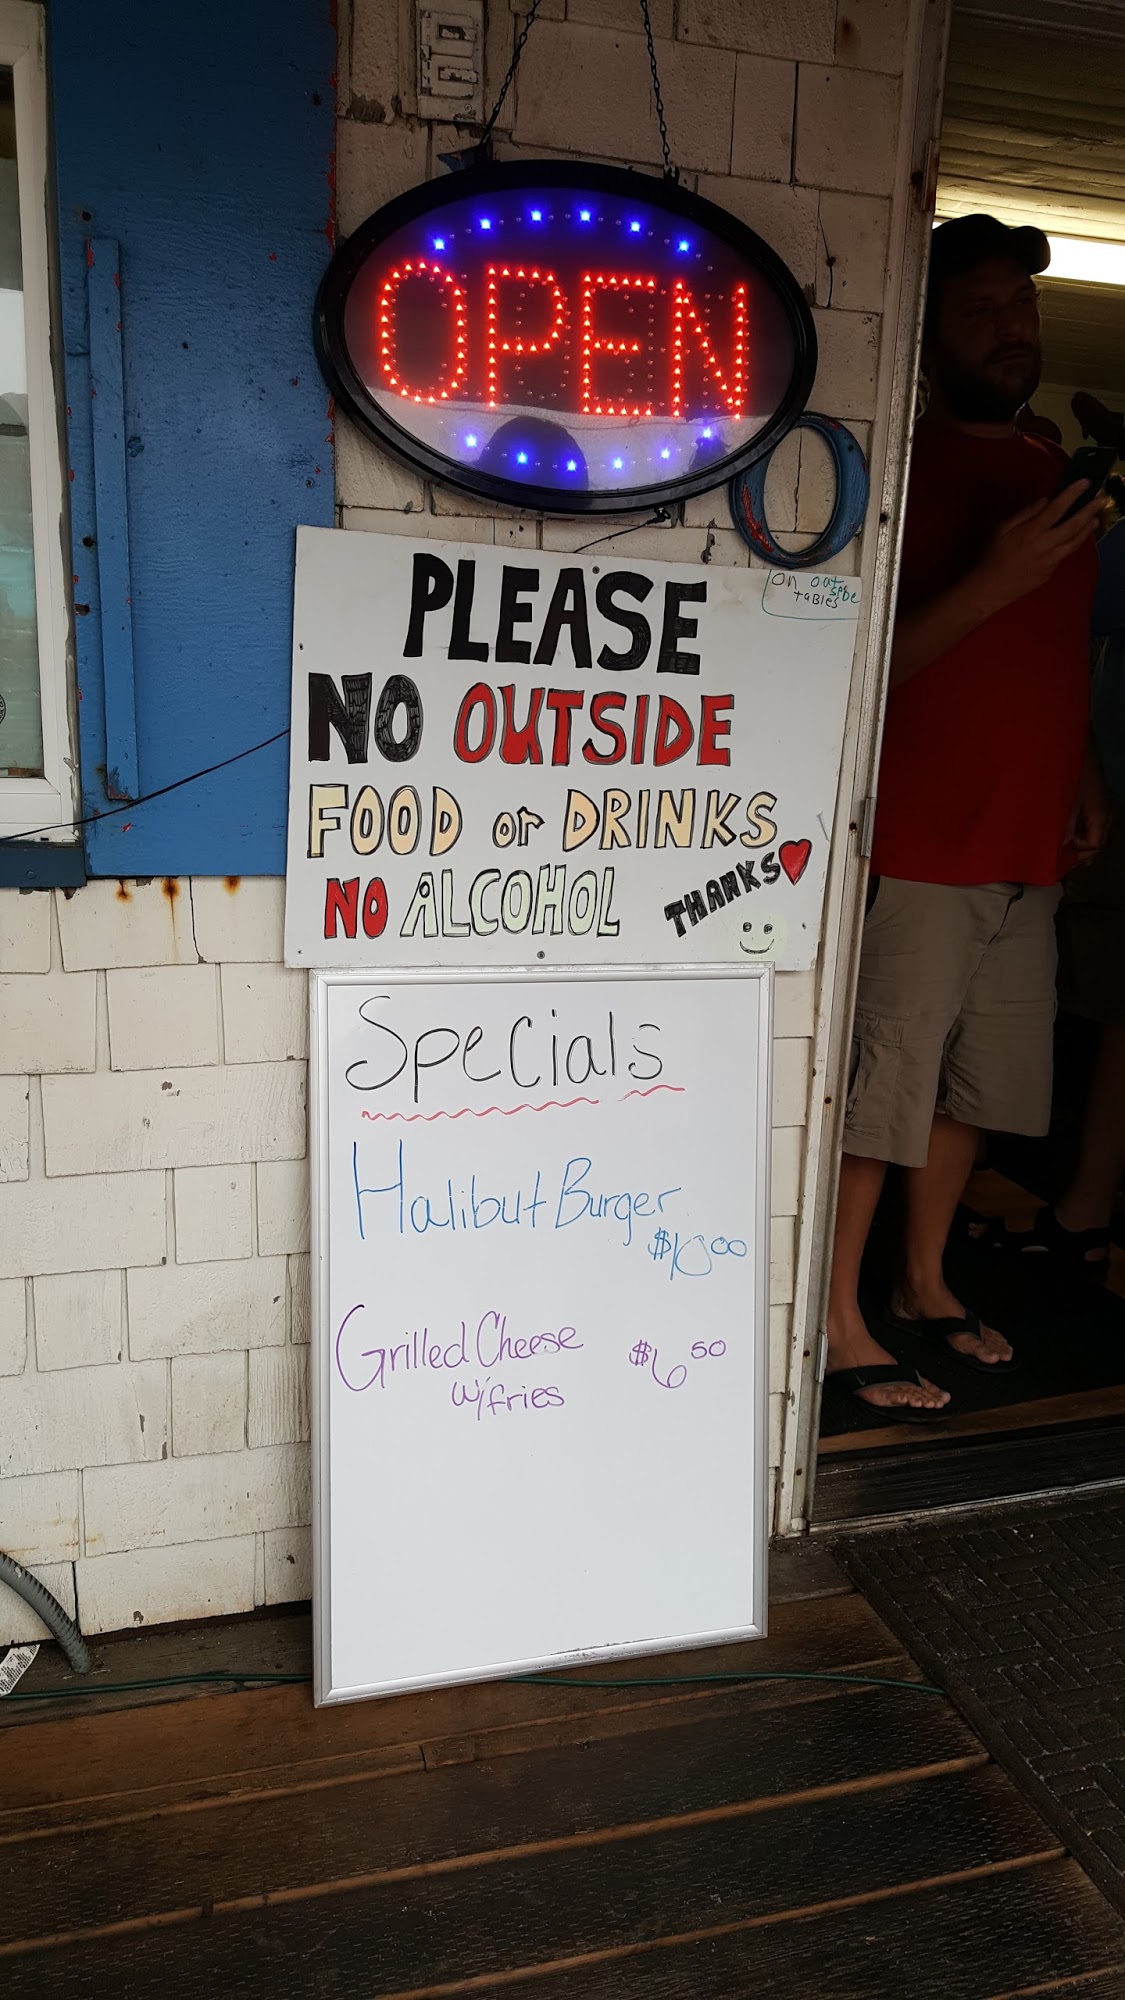 OPEN
PLEASE
on out
side
tables
NO OUTSIDE
FOOD or DRINKS
NO ALCOHOL
THANKS
Specials
Halibut Burger
$10.00
Grilled Cheese $6.50
w/fries